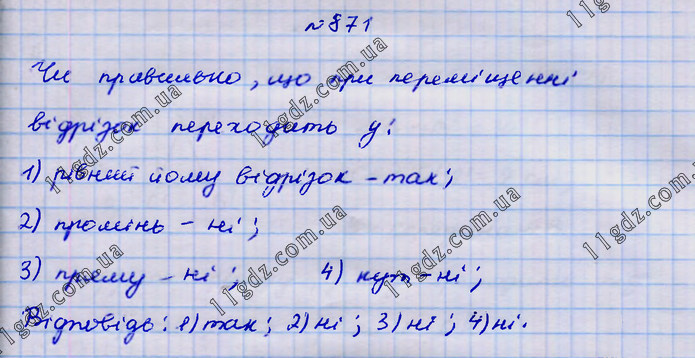 №871
Чи правильно, що при переміщенні
відрізок переходить у:
1) рівний йому відрізок – так;
2) промінь – ні;
3) пряму – ні; 4) кут – ні;
Відповідь: 1) так; 2) ні; 3) ні; 4) ні.
11gdz.com.ua
11gdz.com.ua
11gdz.com.ua
11gdz.com.ua
11gdz.com.ua
11gdz.com.ua
11gdz.com.ua